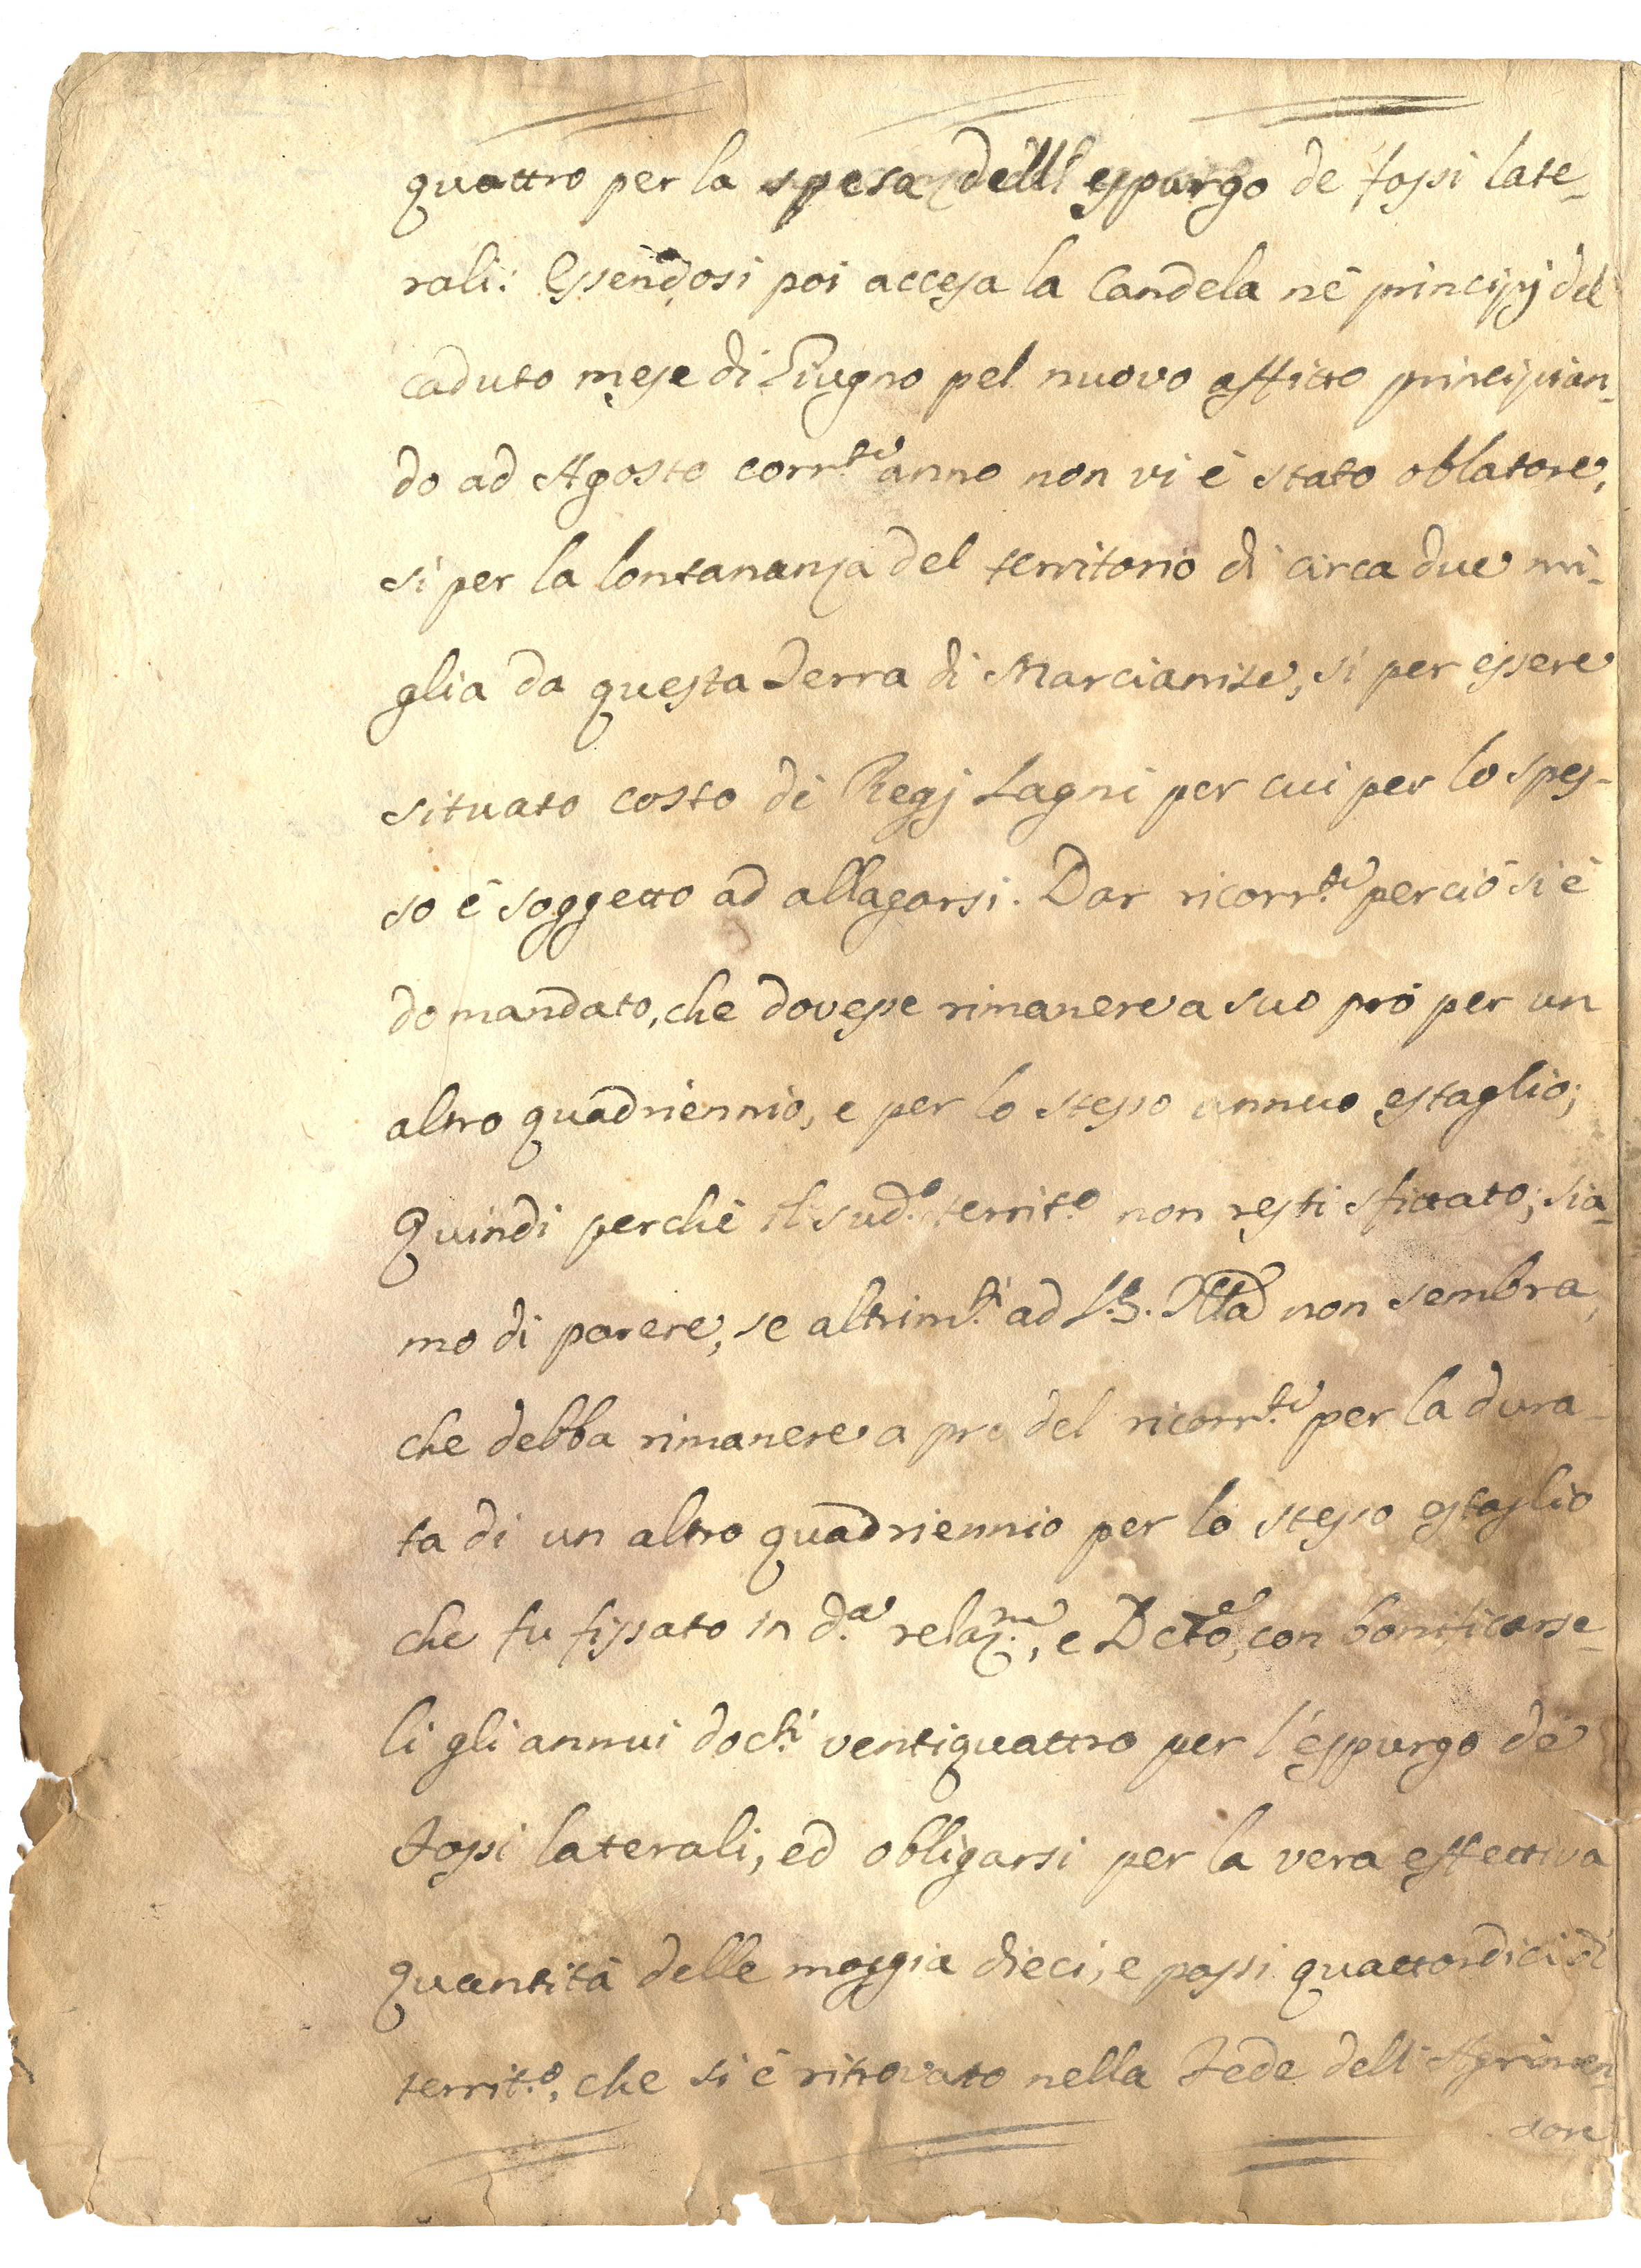 quattro per la spesa dell'espurgo de fossi late-
rali: Essendosi poi accesa la Candela ne' principj del
caduto mese di Giugno pel nuovo affitto principian-
do ad Agosto corr.te anno non vi è stato oblatore,
si per la lontananza del territorio di circa due mi-
glia da questa Terra di Marcianise, si per essere
situato costo di Regj Lagni per cui per lo spes-
so è soggetto ad allagarsi. Dar ricorr.te perciò si è
domandato, che dovesse rimanere a suo prò per un
altro quadriennio, e per lo stesso annuo estaglio;
Quindi perchè il sud.o territ.o non resti sfittato; sia-
mo di parere, se altrim.ti ad V.S. Ill.a non sembra,
che debba rimanere a pro del ricorr.te per la dura-
ta di un altro quadriennio per lo stesso estaglio
che fu fissato in d.a relaz.ne, e Dcto, con bonificarse-
li gli annui doc.ti ventiquattro per l'espurgo de'
Fossi laterali, ed obligarsi per la vera effettiva
quantità delle moggia dieci, e passi quattordici di
territ.o, che si è ritrovato nella Fede dell'Agrimen-
sore